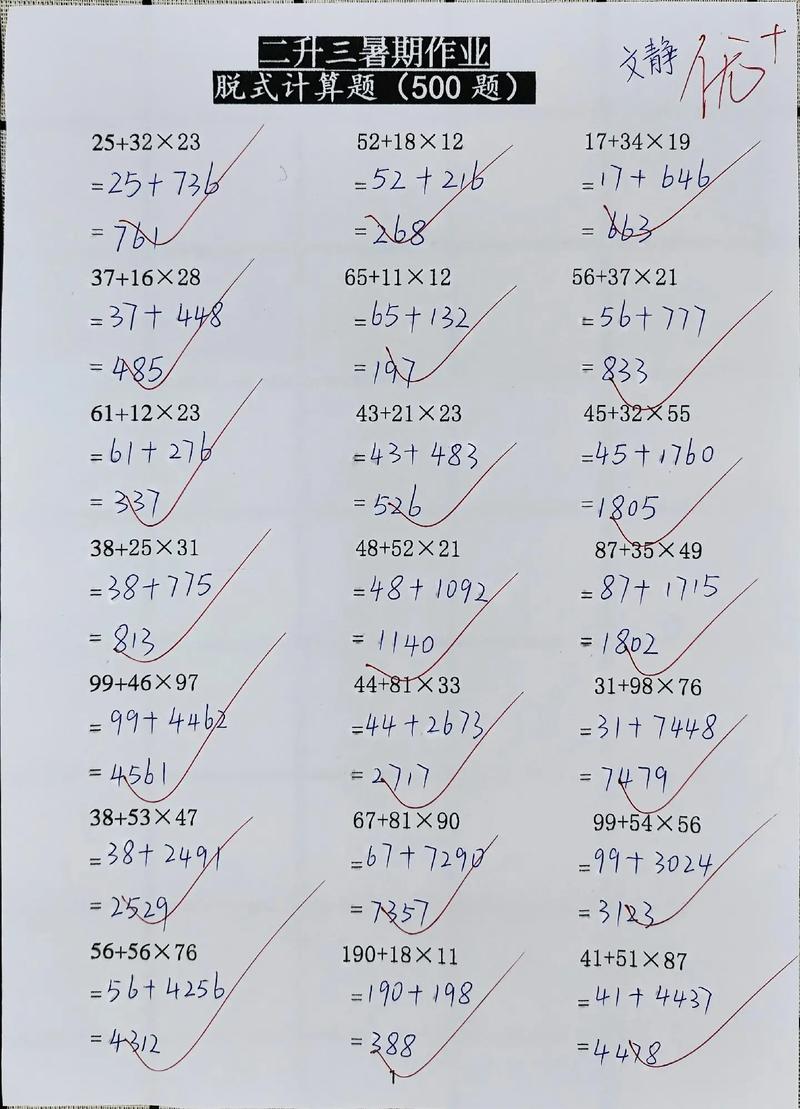 二升三暑期作业
脱式计算题（500题）
文静 优+
25+32×23 52+18×12 17+34×19
=25+736 =52+216 =17+646
=761 =268 =663
37+16×28 65+11×12 56+37×21
=37+448 =65+132 =56+777
=485 =197 =833
61+12×23 43+21×23 45+32×55
=61+276 =43+483 =45+1760
=337 =526 =1805
38+25×31 48+52×21 87+35×49
=38+775 =48+1092 =87+1715
=813 =1140 =1802
99+46×97 44+81×33 31+98×76
=99+4462 =44+2673 =31+7448
=4561 =2717 =7479
38+53×47 67+81×90 99+54×56
=38+2491 =67+7290 =99+3024
=2529 =7357 =3123
56+56×76 190+18×11 41+51×87
=56+4256 =190+198 =41+4437
=4312 =388 =4478
1